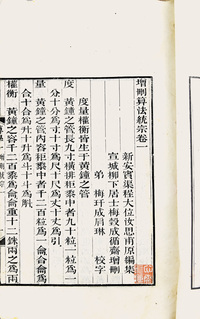 增刪算法統宗卷一
新安賓渠程大位汝思甫原編集
宣城柳下居士梅瑴成循齋增刪
弟 梅玕成肩琳 校字
度量權衡皆生于黃鐘之管
度 黃鐘之管長九寸橫排秬黍中者九十粒一粒為一
分十分為寸十寸為尺十尺為丈十丈為引
量 黃鐘之管內容秬黍中者千二百粒為一龠合龠為
合十合為升十升為斗十斗為斛
權衡 黃鐘之容千二百黍為龠重十二銖兩之為兩